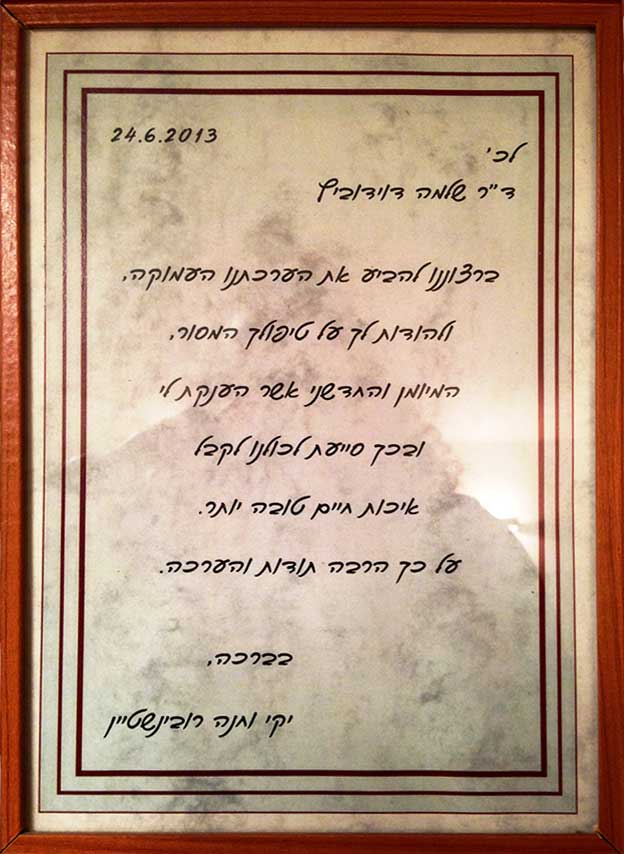 24.6.2013
לכ'
ד"ר שלמה דוידוביץ
ברצוננו להביע את הערכתנו העמוקה,
ולהודות לך על טיפולך המסור,
המיומן והחדשני אשר הענקת לי
ובכך סייעת לכולנו לקבל
איכות חיים טובה יותר.
על כך הרבה תודות והערכה.
בברכה,
יקי וחנה רובינשטיין